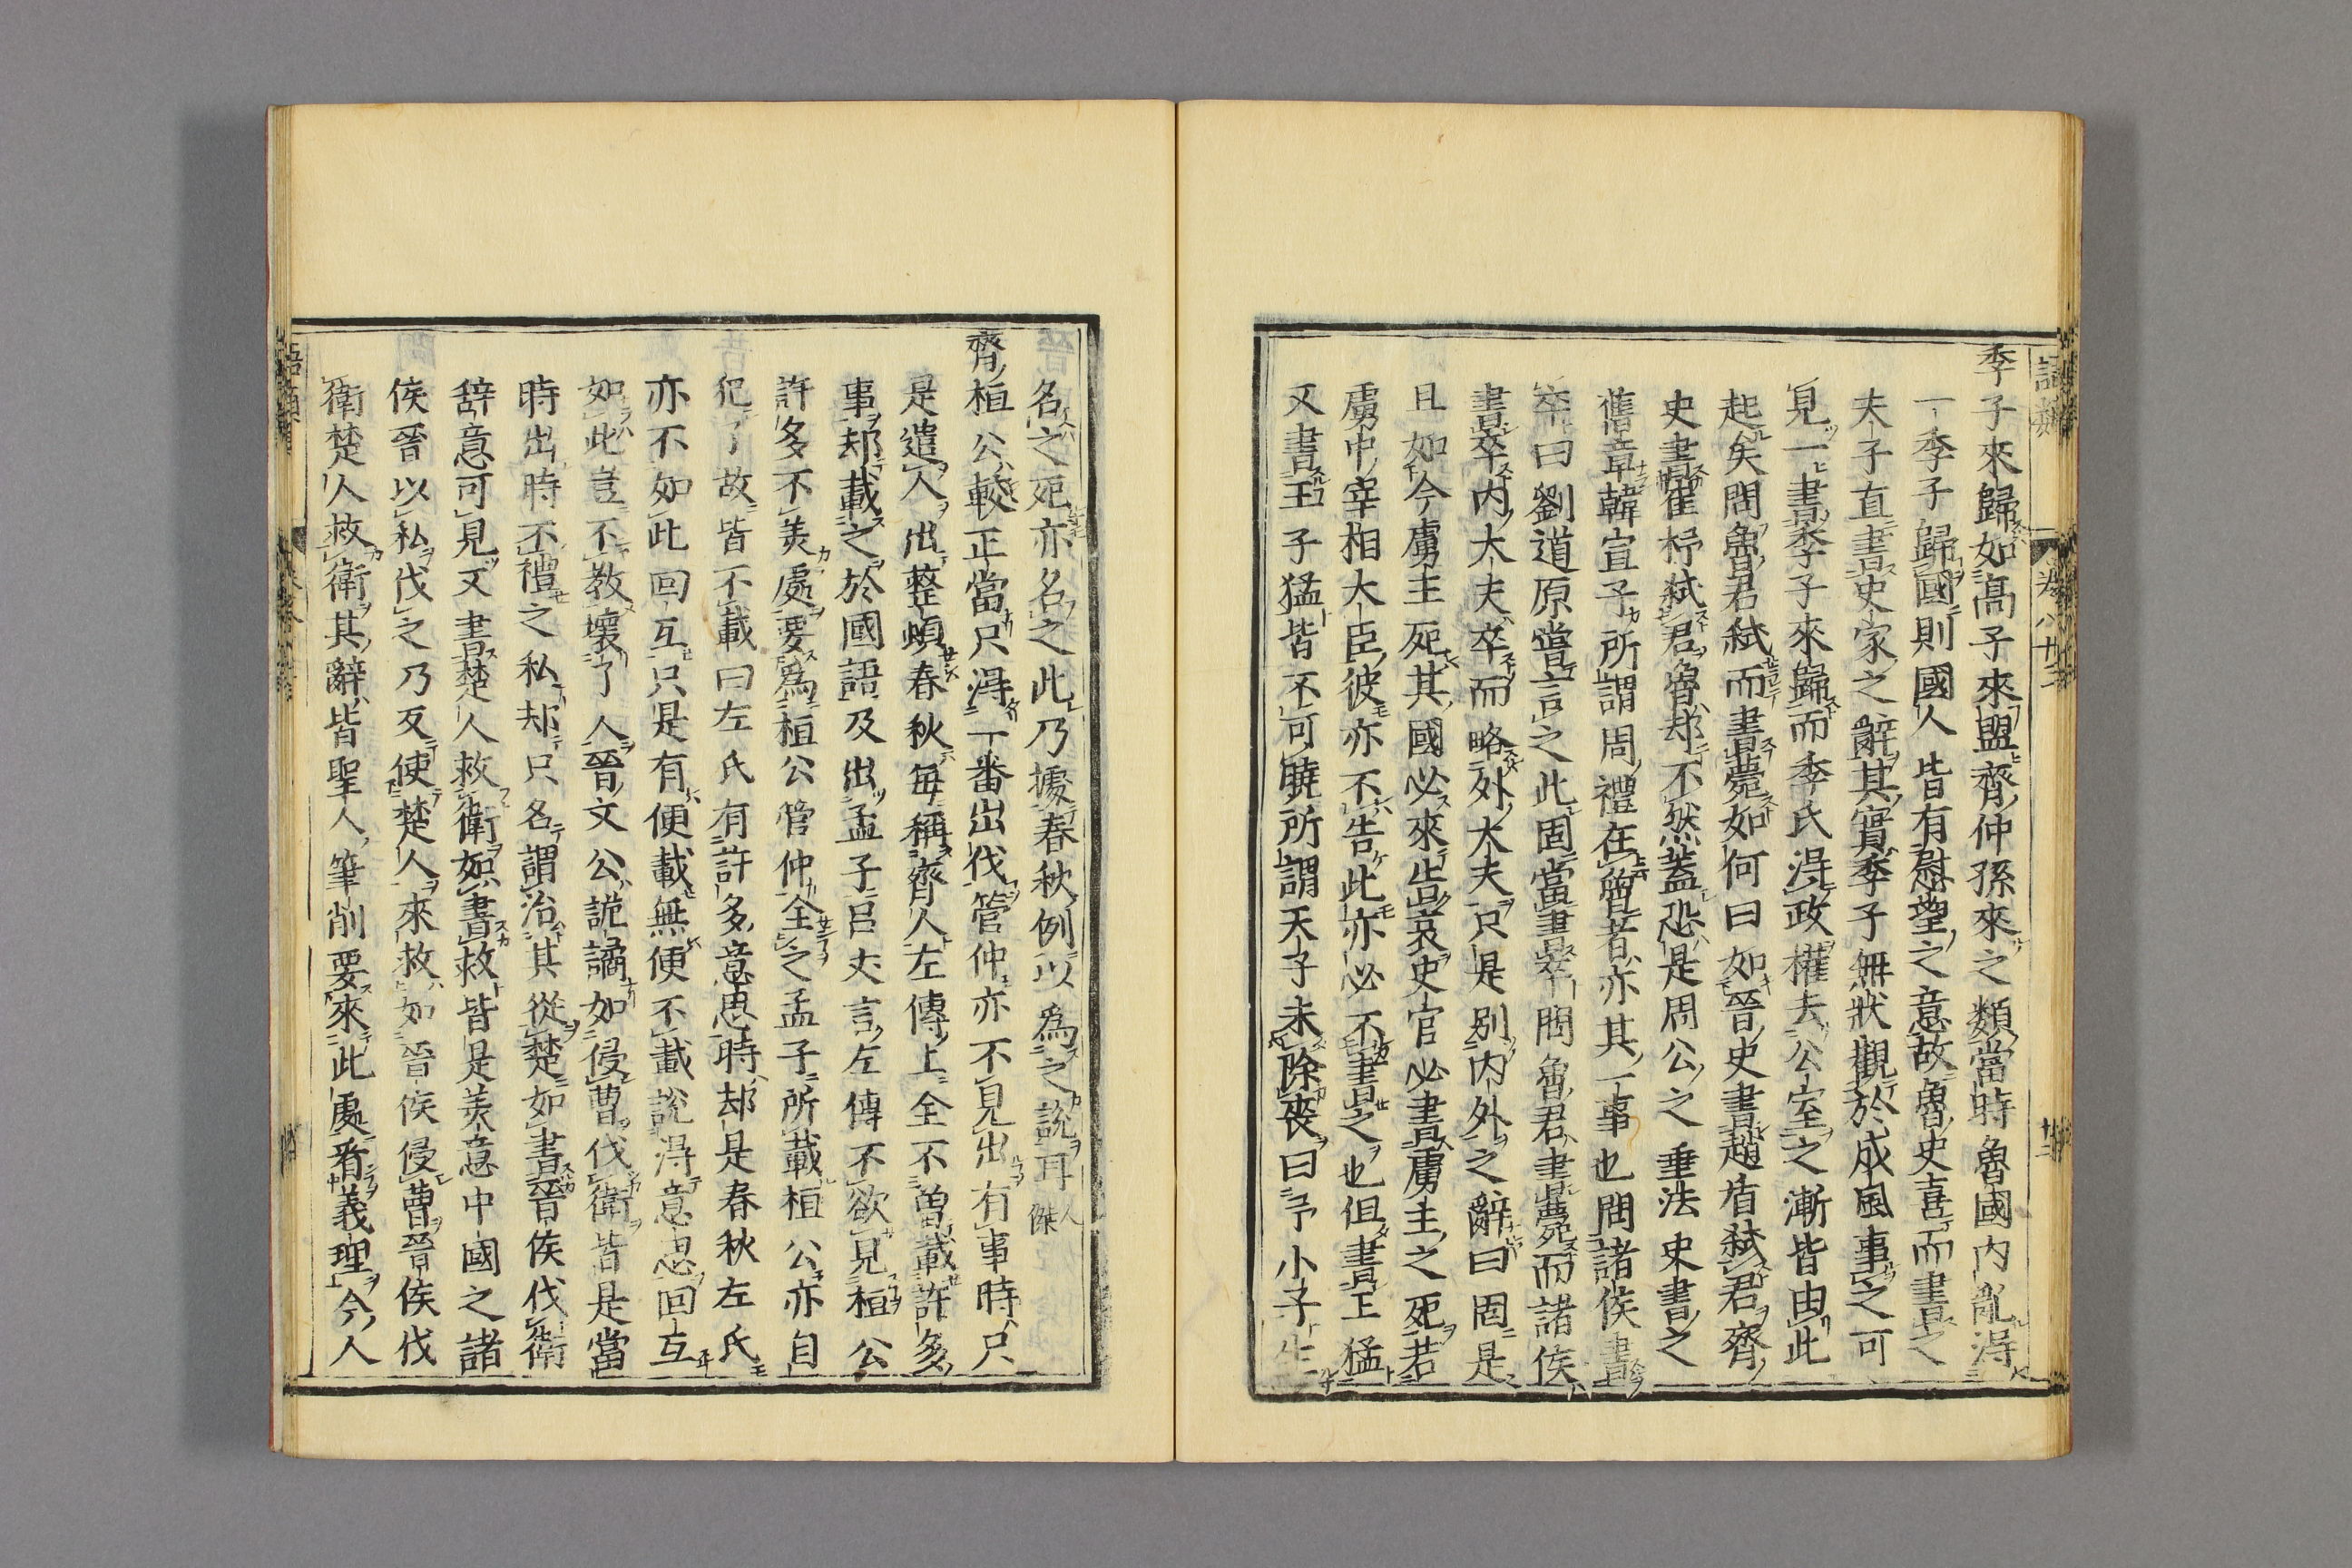 季子來歸如高子來盟齊仲孫來之類當時魯國内亂得
一季子歸國則國人皆有慰望之意故魯史喜而書之
夫子直書史家之辭其實季子無狀觀於成風事之可
見一書季子來歸而季氏得政權去公室之漸皆由此
起矣問魯君弑而書薨如何曰如晉史書趙盾弑君齊
史書崔杼弑君魯却不然蓋恐是周公之垂法史書之
舊章韓宣子所謂周禮在魯者亦其一事也問諸侯書
卒曰劉道原嘗言之此固當書卒問魯君書薨而諸侯
書卒内大夫卒而略外大夫只是别内外之辭曰固是
且如今虜主死其國必來告哀史官必書虜主之死若
虜中宰相大臣彼亦不告此亦必不書之也但書王猛
又書王子猛皆不可曉所謂天子未除喪曰予小子生
名之死亦名之此乃據春秋例以為之説耳 人傑
齊桓公較正當只得一番出伐管仲亦不見出有事時只
是遣人出整頓春秋每稱齊人左傳上全不曽載許多
事却載之於國語及出孟子吕丈言左傳不欲見桓公
許多不美處要為桓公管仲全之孟子所載桓公亦自
犯了故皆不載曰左氏有許多意思時却是春秋左氏
亦不如此回互只是有便載無便不載説得意思回互
如此豈不教壞了人晉文公詭譎如侵曹伐衛皆是當
時出時不禮之私却只名謂治其從楚如書晉侯伐衛
辭意可見又書楚人救衛如書救皆是美意中國之諸
侯晉以私伐之乃反使楚人來救如晉侯侵曹晉侯伐
衛楚人救衛其辭皆聖人筆削要來此處看義理今人